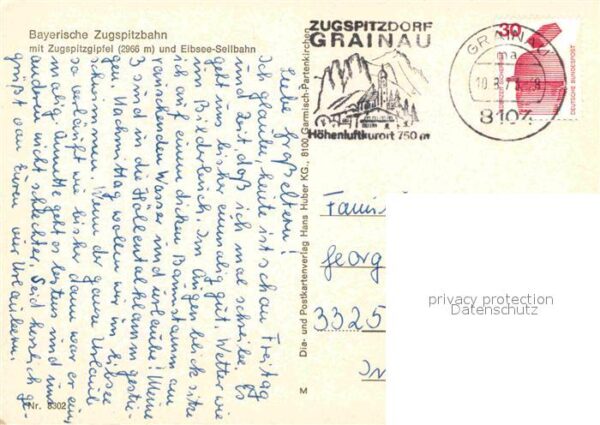 Bayerische Zugspitzbahn
mit Zugspitzgipfel (2966 m) und Eibsee-Seilbahn
Liebe Großeltern!
Ich glaube, heute ist schon Freitag
und Zeit daß ich mal schreibe. Es
geht uns bisher einmalig gut. Wetter wie
im Bilderbuch. Im Augenblick sitze
ich auf einem dicken Baumstamm am
rauschenden Wasser und schreibe! Meine
3 sind in die Höllentalklamm gestie-
gen. Nachmittag wollen wir im Eibsee
schwimmen. Wenn der ganze Urlaub
so verläuft wie bisher dann war er ein-
malig. Anette geht es bestens und uns
anderen nicht schlechter. Seid herzlich ge-
grüßt von Euren vier Urlaubern.
Nr. 8302
Dia- und Postkartenverlag Hans Huber KG., 8100 Garmisch-Partenkirchen
M
ZUGSPITZDORF
GRAINAU
Höhenluftkurort 750 m
GRAINAU
ma
8104
30
DEUTSCHE BUNDESPOST
Georg
3325
privacy protection
Datenschutz